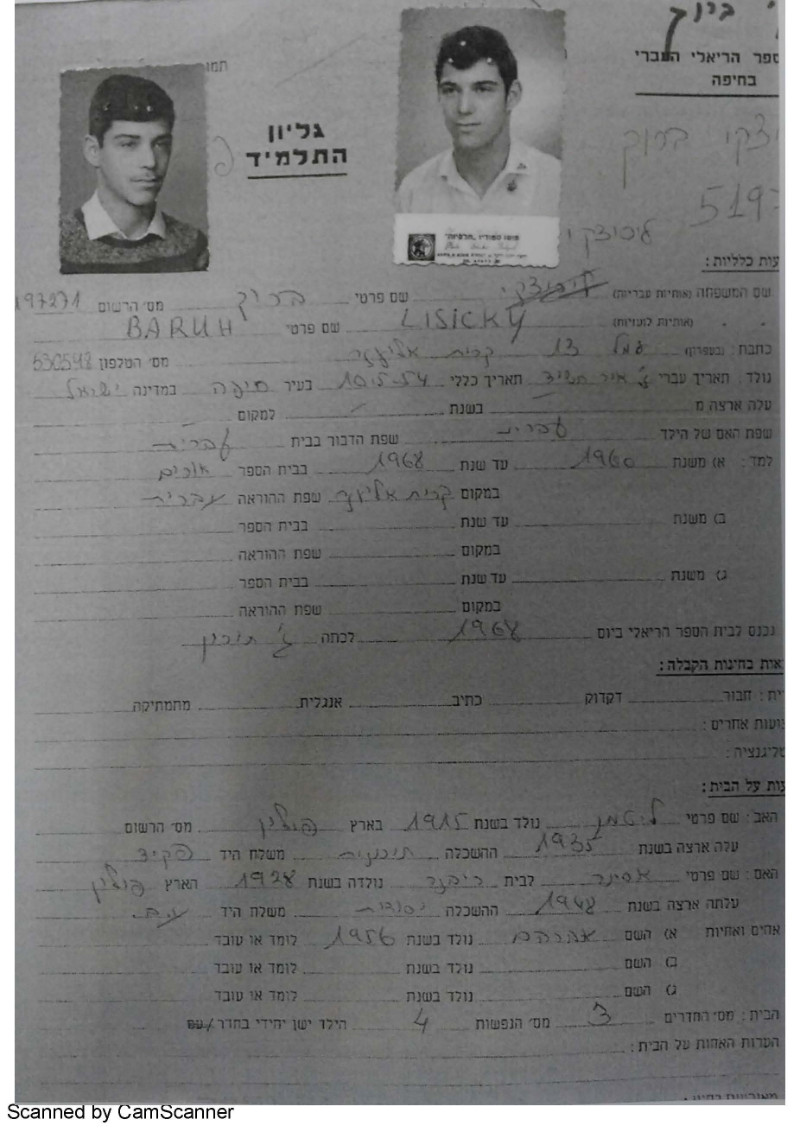 ספר הריאלי העברי
בחיפה
גליון
התלמיד
5197
ליסיצקי
שם המשפחה (אותיות עבריות) ליסיצקי שם פרטי ברוך מס' הרשום 197271
(אותיות לועזיות) LISICKY שם פרטי BARUH
כתבת: גמל 13 קרית אליעזר מס' הטלפון 530598
נולד: תאריך עברי אייר תשי"ד תאריך כללי 10.5.54 בעיר חיפה במדינה ישראל
עלה ארצה מ בשנת למקום
שפת האם של הילד עברית שפת הדבור בבית עברית
למד: א) משנת 1960 עד שנת 1968 בבית הספר
במקום קרית אליעזר שפת ההוראה עברית
ב) משנת עד שנת בבית הספר
במקום שפת ההוראה
ג) משנת עד שנת בבית הספר
במקום שפת ההוראה
נכנס לבית הספר הריאלי ביום 1968 לכתה
בחינות הקבלה:
חבור דקדוק כתיב אנגלית מתמתיקה
אחרים:
על הבית:
האב: שם פרטי ליטמן נולד בשנת 1915 בארץ פולין מס' הרשום
עלה ארצה בשנת 1935 ההשכלה תיכונית משלח היד פקיד
האם: שם פרטי אסתר לבית נולדה בשנת 1928 הארץ פולין
עלתה ארצה בשנת 1948 ההשכלה יסודית משלח היד
אחים ואחיות א) השם אברהם נולד בשנת 1956 לומד או עובד
ב) השם נולד בשנת לומד או עובד
ג) השם נולד בשנת לומד או עובד
הבית: מס' החדרים 3 מס' הנפשות 4 הילד ישן יחידי בחדר/עם
הערות האחות על הבית:
Scanned by CamScanner